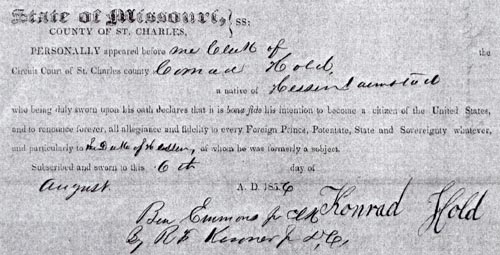 State of Missouri, } SS:
COUNTY OF ST. CHARLES,
PERSONALLY appeared before me Clerk of the
Circuit Court of St. Charles county Conrad Hold,
a native of Hessen Darmstad
who being duly sworn upon his oath declares that it is bona fide his intention to become a citizen of the United States,
and to renounce forever, all allegiance and fidelity to every Foreign Prince, Potentate, State and Sovereignty whatever,
and particularly to the Duke of Hessen, of whom he was formerly a subject.
Subscribed and sworn to this 6th day of
August A. D. 1856
Ben Emmons jr Clk Konrad Hold
By R F